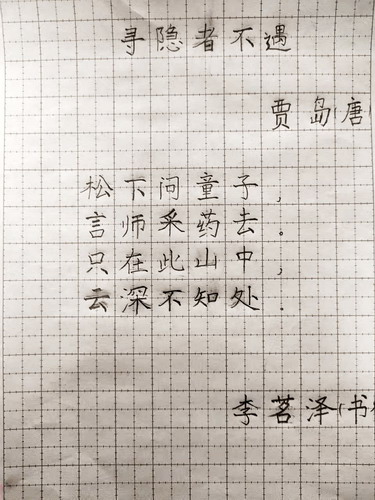 寻隐者不遇
贾岛(唐
松下问童子，
言师采药去。
只在此山中，
云深不知处.
李茗泽(书